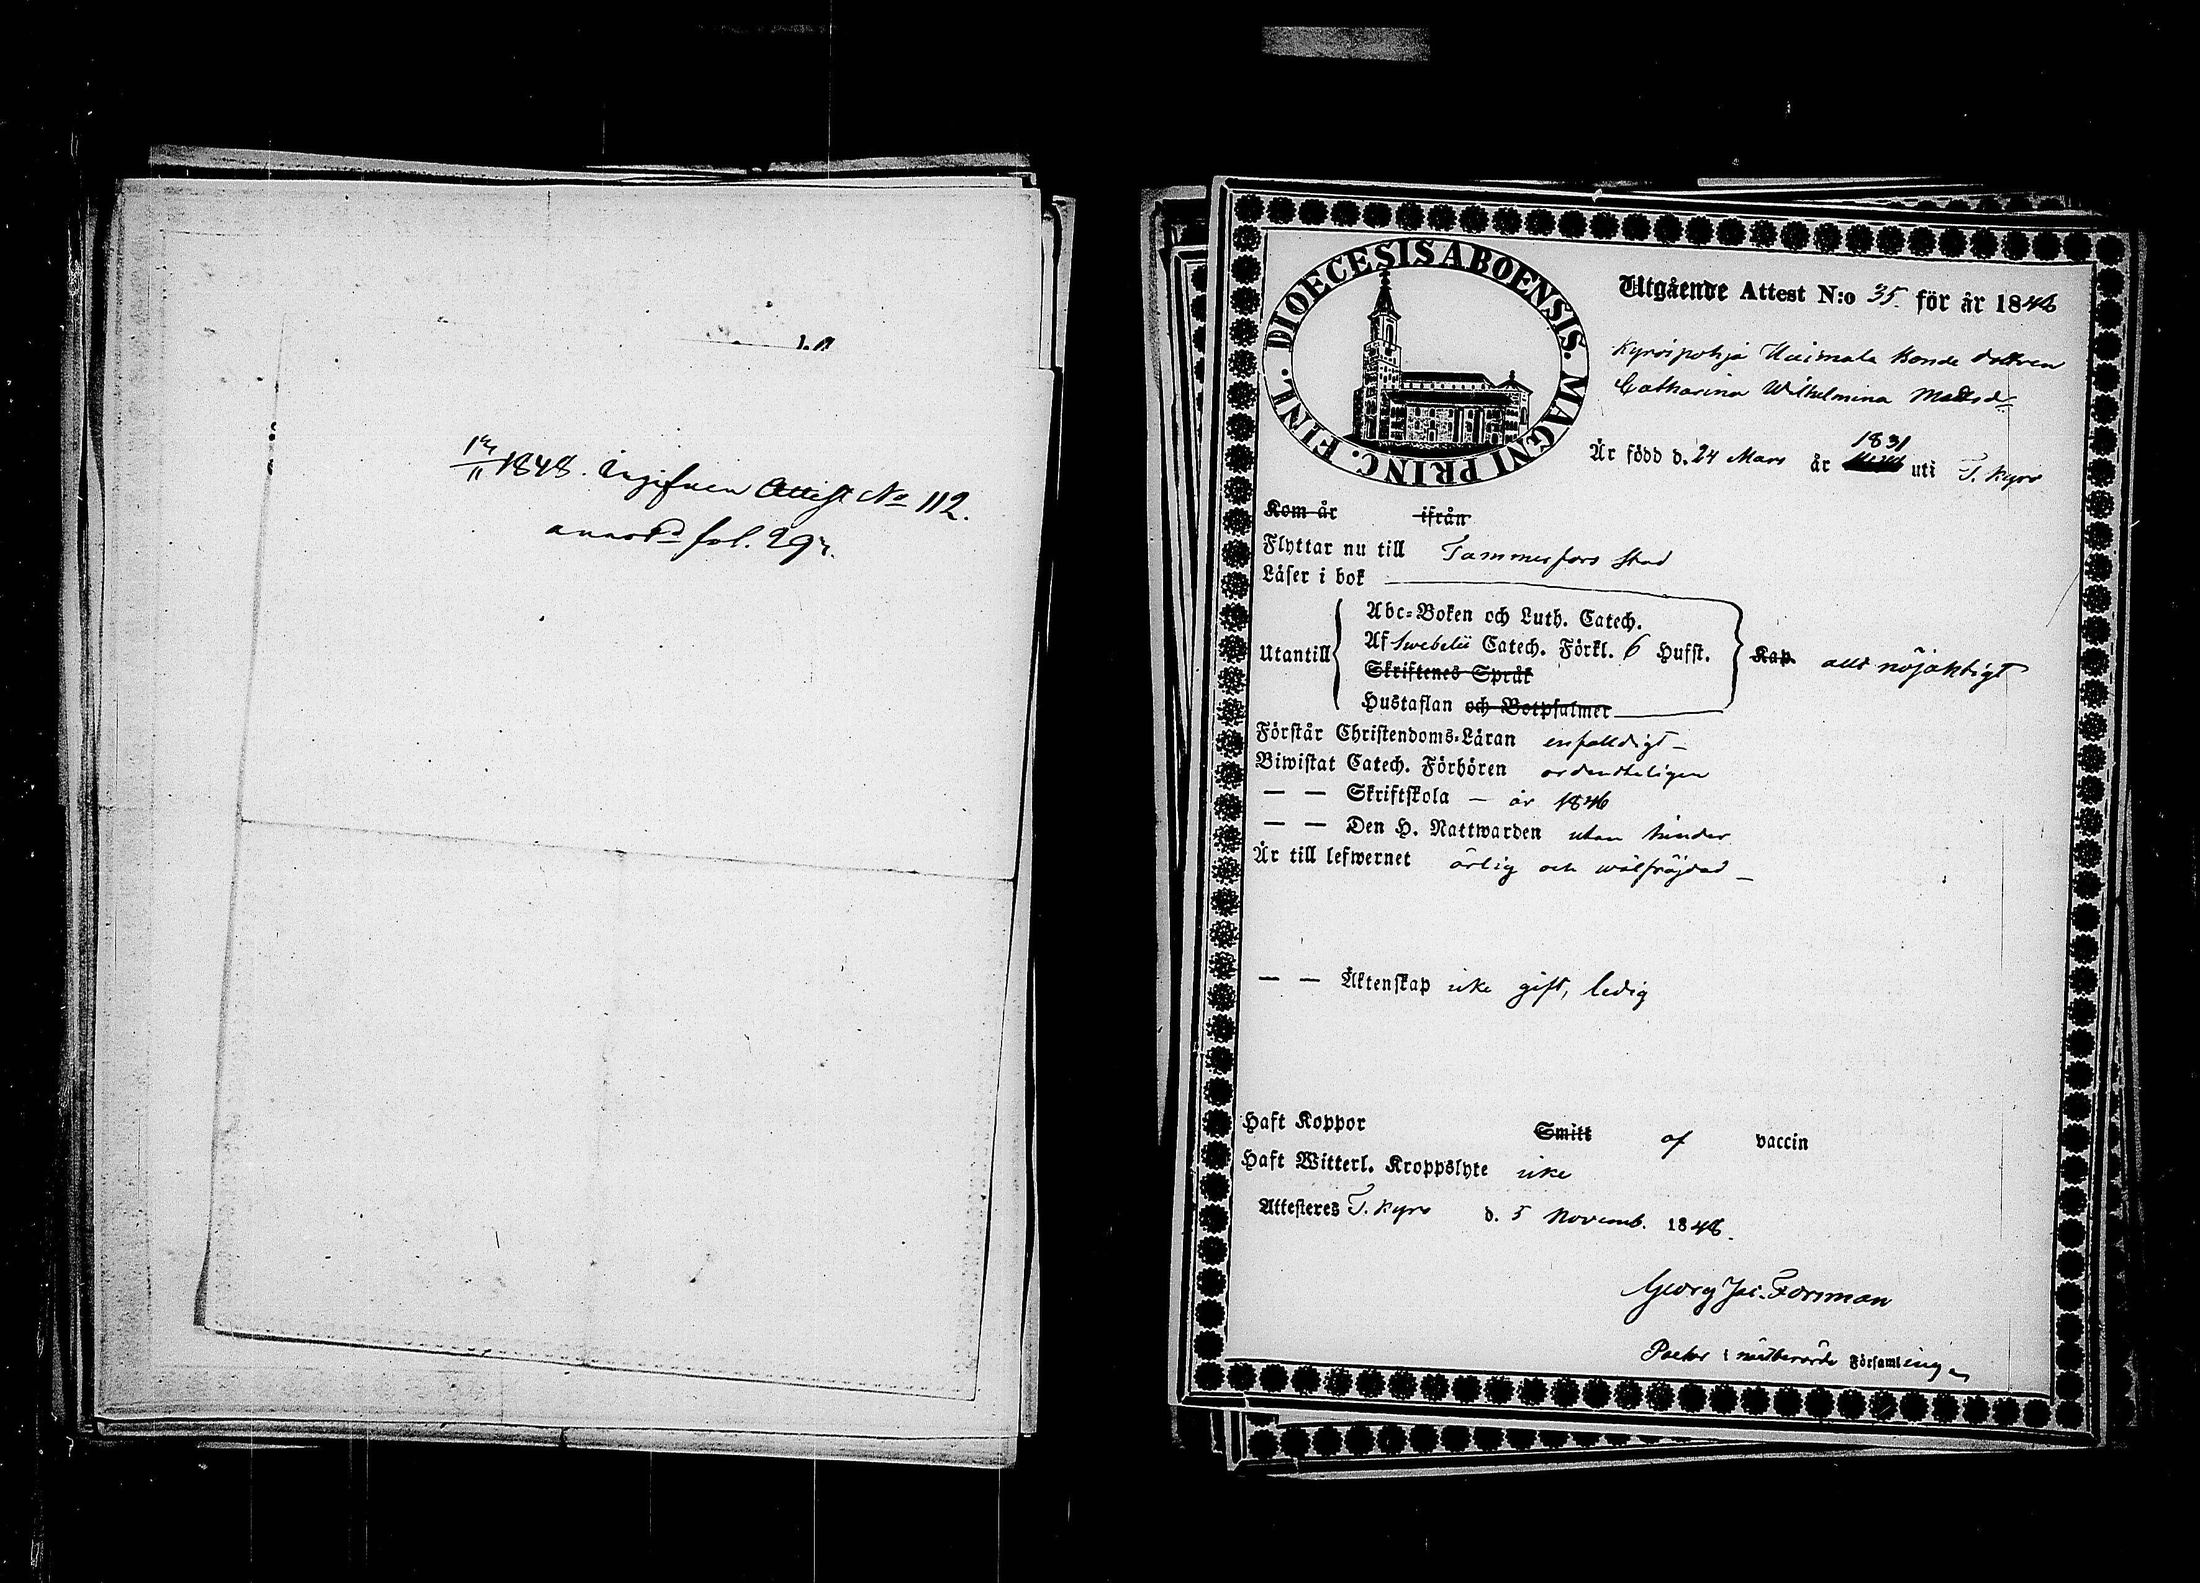 1848. Ingifven Attest No 112.
fol. 297.
DIOECESIS ABOENSIS. MAGNI PRINC. FINL.
Utgående Attest N:o 35. för år 1848
Kyröspohja Uuimala Bonde dottren
Catharina Wilhelmina Matsd:
Är född d. 24 Mars år 1831 uti T. Kyro
Kom år ifrån
Flyttar nu till Tammerfors stad
Läser i bok
Abc-Boken och Luth. Catech.
Utantill Af Swebelii Catech. Förkl. 6 Hufst. Kap. allt nöjaktigt
Skriftenes Språk
Hustaflan och Botpsalmer
Förstår Christendoms-Läran enfaldigt –
Biwistat Catech. Förhören ordentheligen
— — Skriftskola – år 1846
— — Den H. Nattwarden utan hinder
Är till lefwernet ärlig och wälfräjdad –
— — Äktenskap icke gift, ledig
Haft Koppor Smitt af vaccin
Haft Witterl. Kroppslyte icke
Attesteres T. Kyro d. 5 Novemb. 1848.
Georg Jac. Forsman
Pastor i nästberörde Församlingen